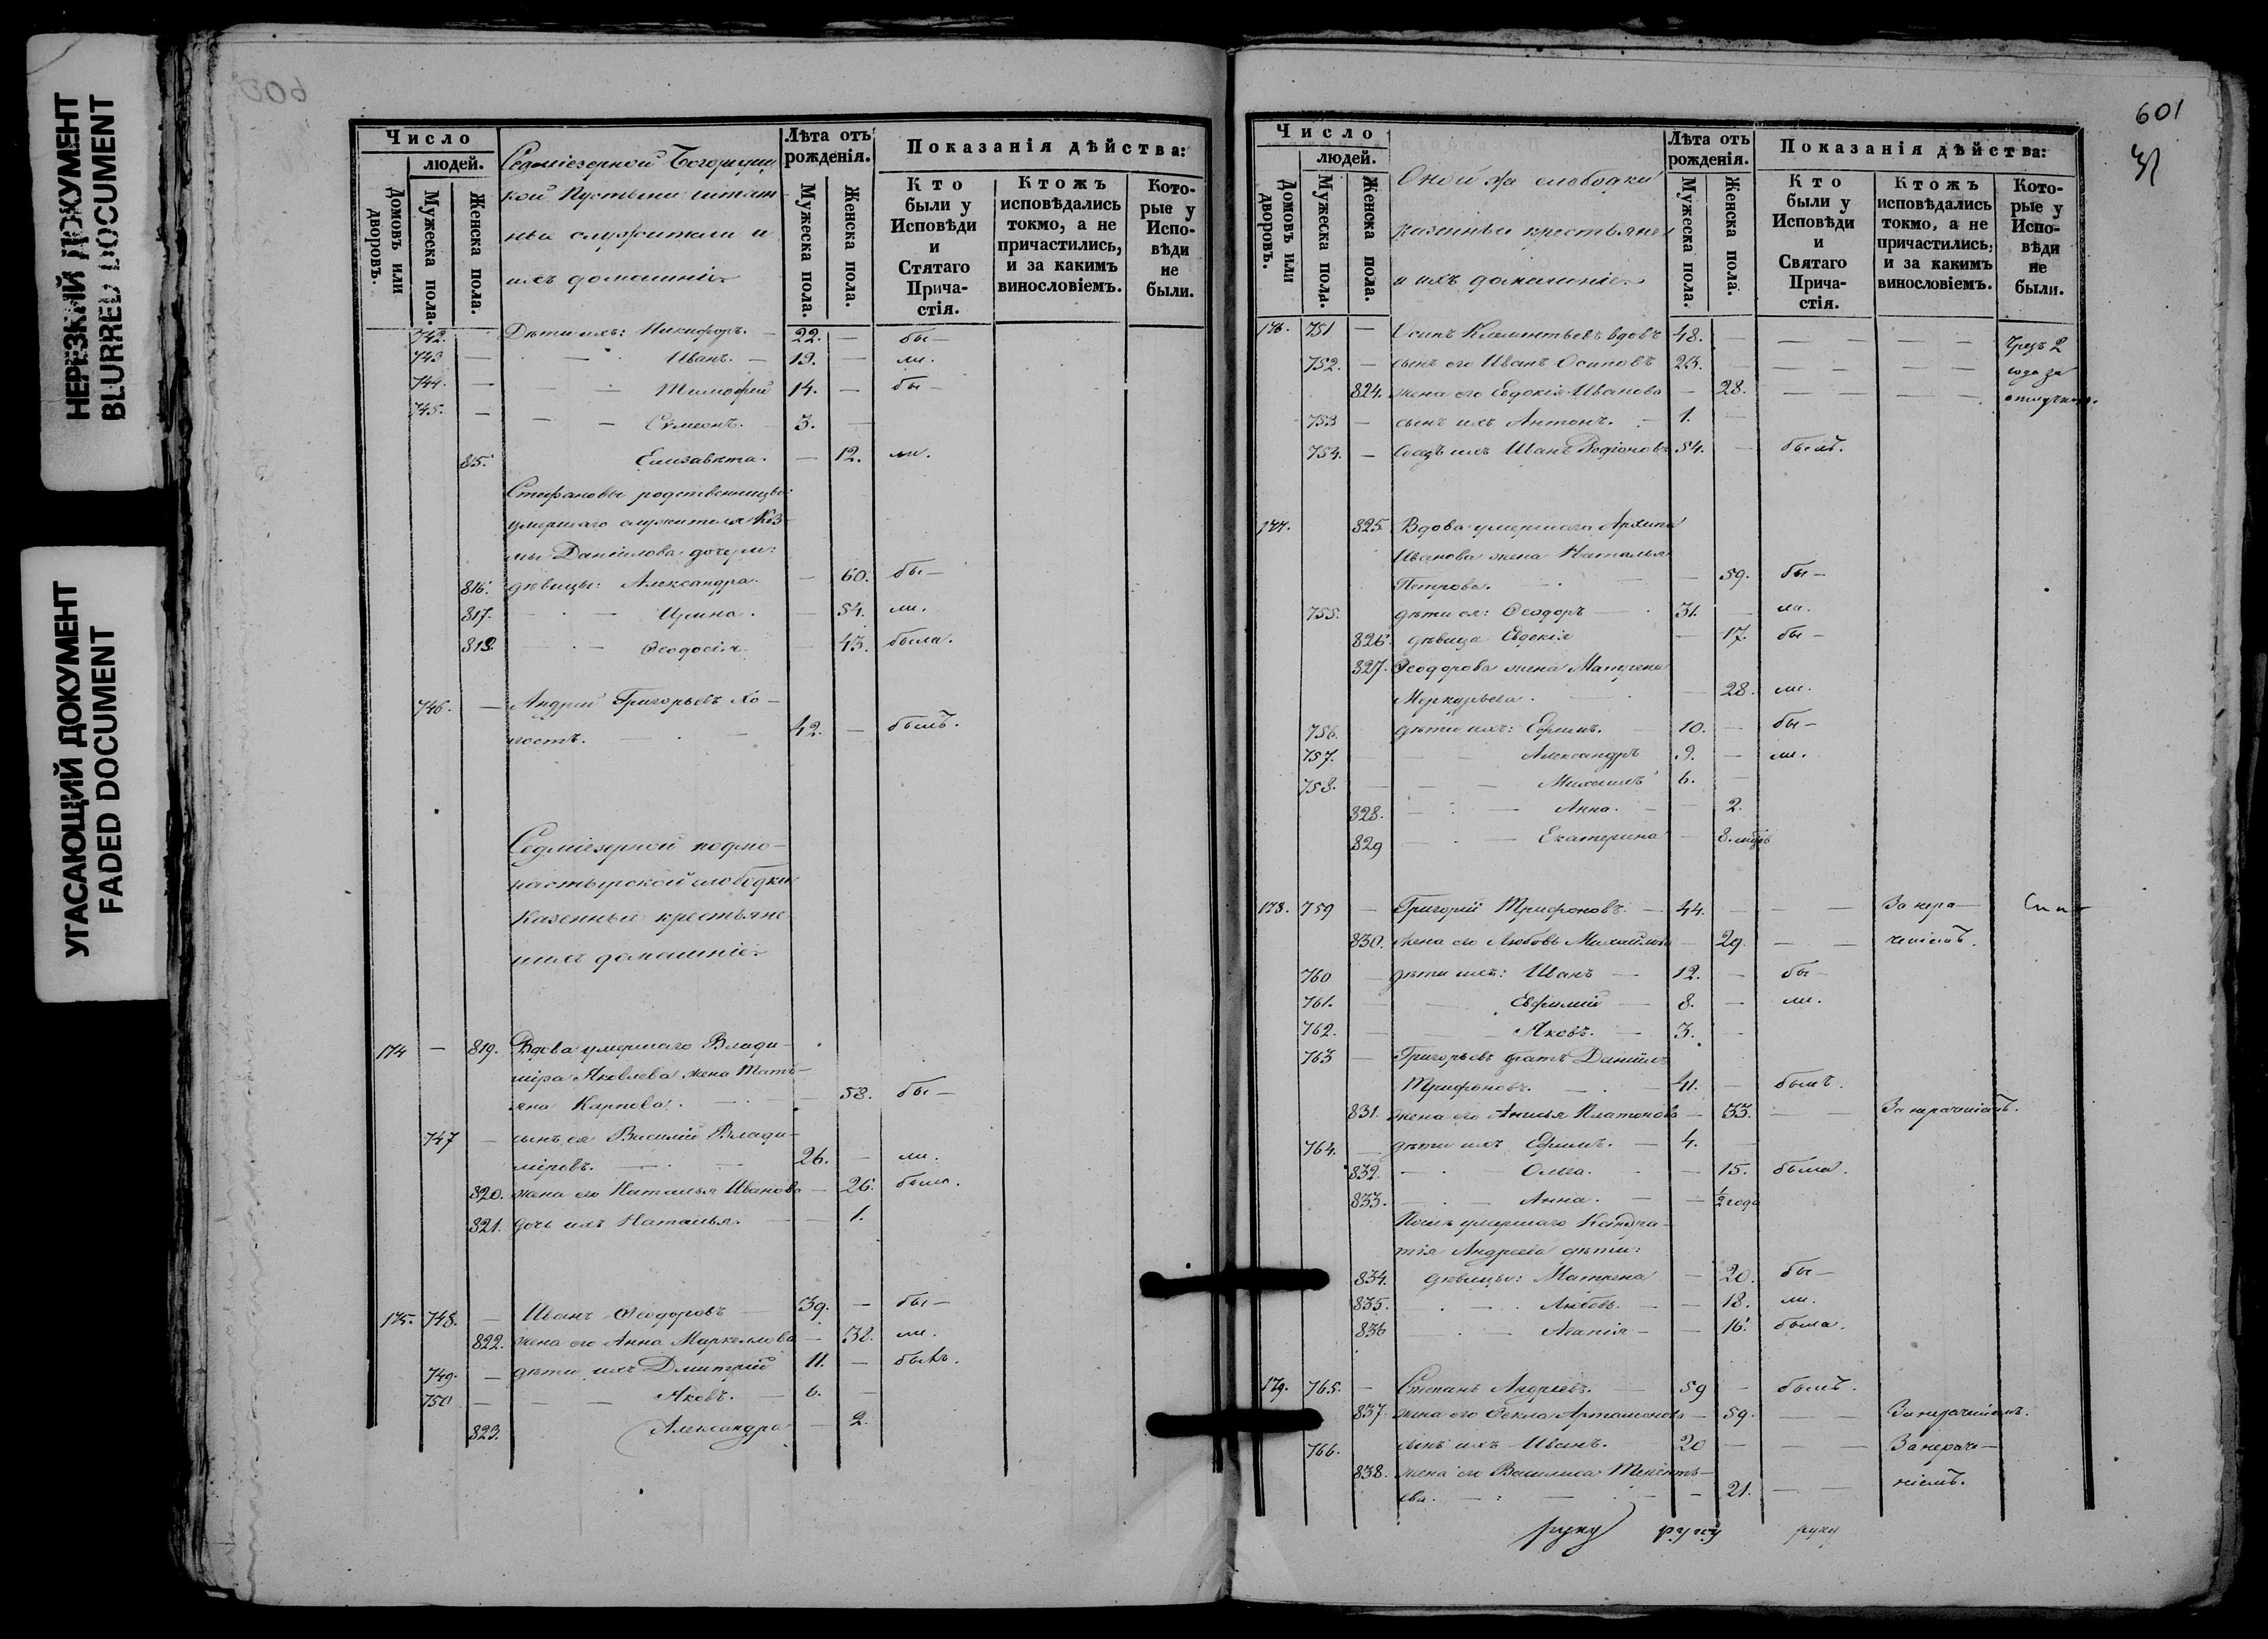 НЕРЕЗКИЙ ДОКУМЕНТ
BLURRED DOCUMENT
УГАСАЮЩИЙ ДОКУМЕНТ
FADED DOCUMENT
Число
людей.
Домовъ или дворовъ.
Мужеска пола.
Женска пола.
Седміезерной Богородиц
кой Пустыни штат
ныи служители и
ихъ домашніе
Лѣта отъ рожденія.
Мужеска пола.
Женска пола.
Показанія дѣйства:
Кто были у Исповѣди и Стятаго Прича-стія.
Ктожъ исповѣдались токмо, а не причастились, и за какимъ винословіемъ.
Кото-рые у Испо-вѣди не были.
742. — Дѣти ихъ: Никифоръ. — 22. — бы —
743 — — Иванъ. — 19. — ли.
744. — — — Тимофей 14. — бы —
745. — — — Сѵмеонъ. — 3. —
815. Елизавета. — 12. ли.
Стефановы родственницы:
умершаго служителя Коз
мы Даніилова дочери:
816. дѣвицы: Александра. — 60. бы —
817. — — Ирина. — 54. ли.
818. — — Ѳеодосія. — 43. была.
746. — Андрей Григорьевъ хо —
лостъ. — — 42. — былъ.
Седміезерной подмо —
настырской слободки
казенные крестьяне
и ихъ домашніе
174 — 819. Вдова умершаго Влади —
міра Яковлева жена Тать —
яна Карпова. — 58. бы —
747 — сынъ ея Василій Влади —
міровъ. — — 26. — ли.
820. жена его Наталья Иванова — 26. была.
821. дочь ихъ Наталья. — — 1.
175. 748. — Иванъ Ѳеодоровъ — 39. — бы —
822. жена его Анна Маркеллова — 32. ли.
749. — дѣти ихъ Дмитрій 11. — былъ.
750 — — — Яковъ. — 6. —
823. Александра — 2.
601
Число
людей.
Домовъ или дворовъ.
Мужеска пола.
Женска пола.
Оной же слободки
казенныи крестьяне
и ихъ домашніе
Лѣта отъ рожденія.
Мужеска пола.
Женска пола.
Показанія дѣйства:
Кто были у Исповѣди и Святаго Прича-стія.
Ктожъ исповѣдались токмо, а не причастились, и за какимъ винословіемъ.
Кото-рые у Испо-вѣди не были.
176. 751 — Осипъ Климентьевъ вдовъ 48. — — — — — Чрезъ 2
752. — сынъ его Иванъ Осиповъ 23. — — — — — года за
824. жена его Евдокія Иванова — 28. — — — — отлучкою.
753 — сынъ ихъ Антонъ. — 1. —
754. — Сватъ ихъ Иванъ Родіоновъ 54. — былъ.
177. 825. Вдова умершаго Архипа
Иванова жена Наталья
Петрова. — — 59. бы —
755. дѣти ея: Ѳеодоръ — 31. — ли.
826. дѣвица Евдокія — 17. бы —
827. Ѳеодорова жена Матрена
Меркурьева. — — 28. ли.
756. дѣти ихъ: Ефимъ. — 10. — бы —
757. — — Александръ 9. — ли.
758. — — — Михаилъ 6. —
828. — — Анна. — — 2.
829 — — Екатерина — 8.
178. 759 — Григорій Трифоновъ. — 44. — — — За нера —
830. жена его Любовь Михайлова — 29. — — чѣніемъ.
760 — дѣти ихъ: Иванъ — 12. — бы —
761. — — Евфимій — 8. — ли.
762. — — Яковъ. — 3. —
763 — Григорьевъ братъ Даніилъ
Трифоновъ. — — 41. — былъ.
831. жена его Анисья Платонова — 33. — — За нерачѣніемъ.
764. — дѣти ихъ Ефимъ. — 4. —
832. — — Ольга. — — 15. была.
833. — — Анна. — — ½ года
умершаго Кондра —
тія Андреева дѣти:
834. дѣвицы: Матрена — 20. бы —
835. — — Любовь. — — 18. ли.
836 — Агапія — — 16. была.
179. 765. — Степанъ Андреевъ. — 59 — былъ.
837. жена его Ѳекла Артамонова — 59. — — За нерачѣніемъ.
766. сынъ ихъ Иванъ. — 20 — — — За нерачѣ —
838. жена его Василиса Теренть —
ева. — — — 21. — — ніемъ.
руку руку руку